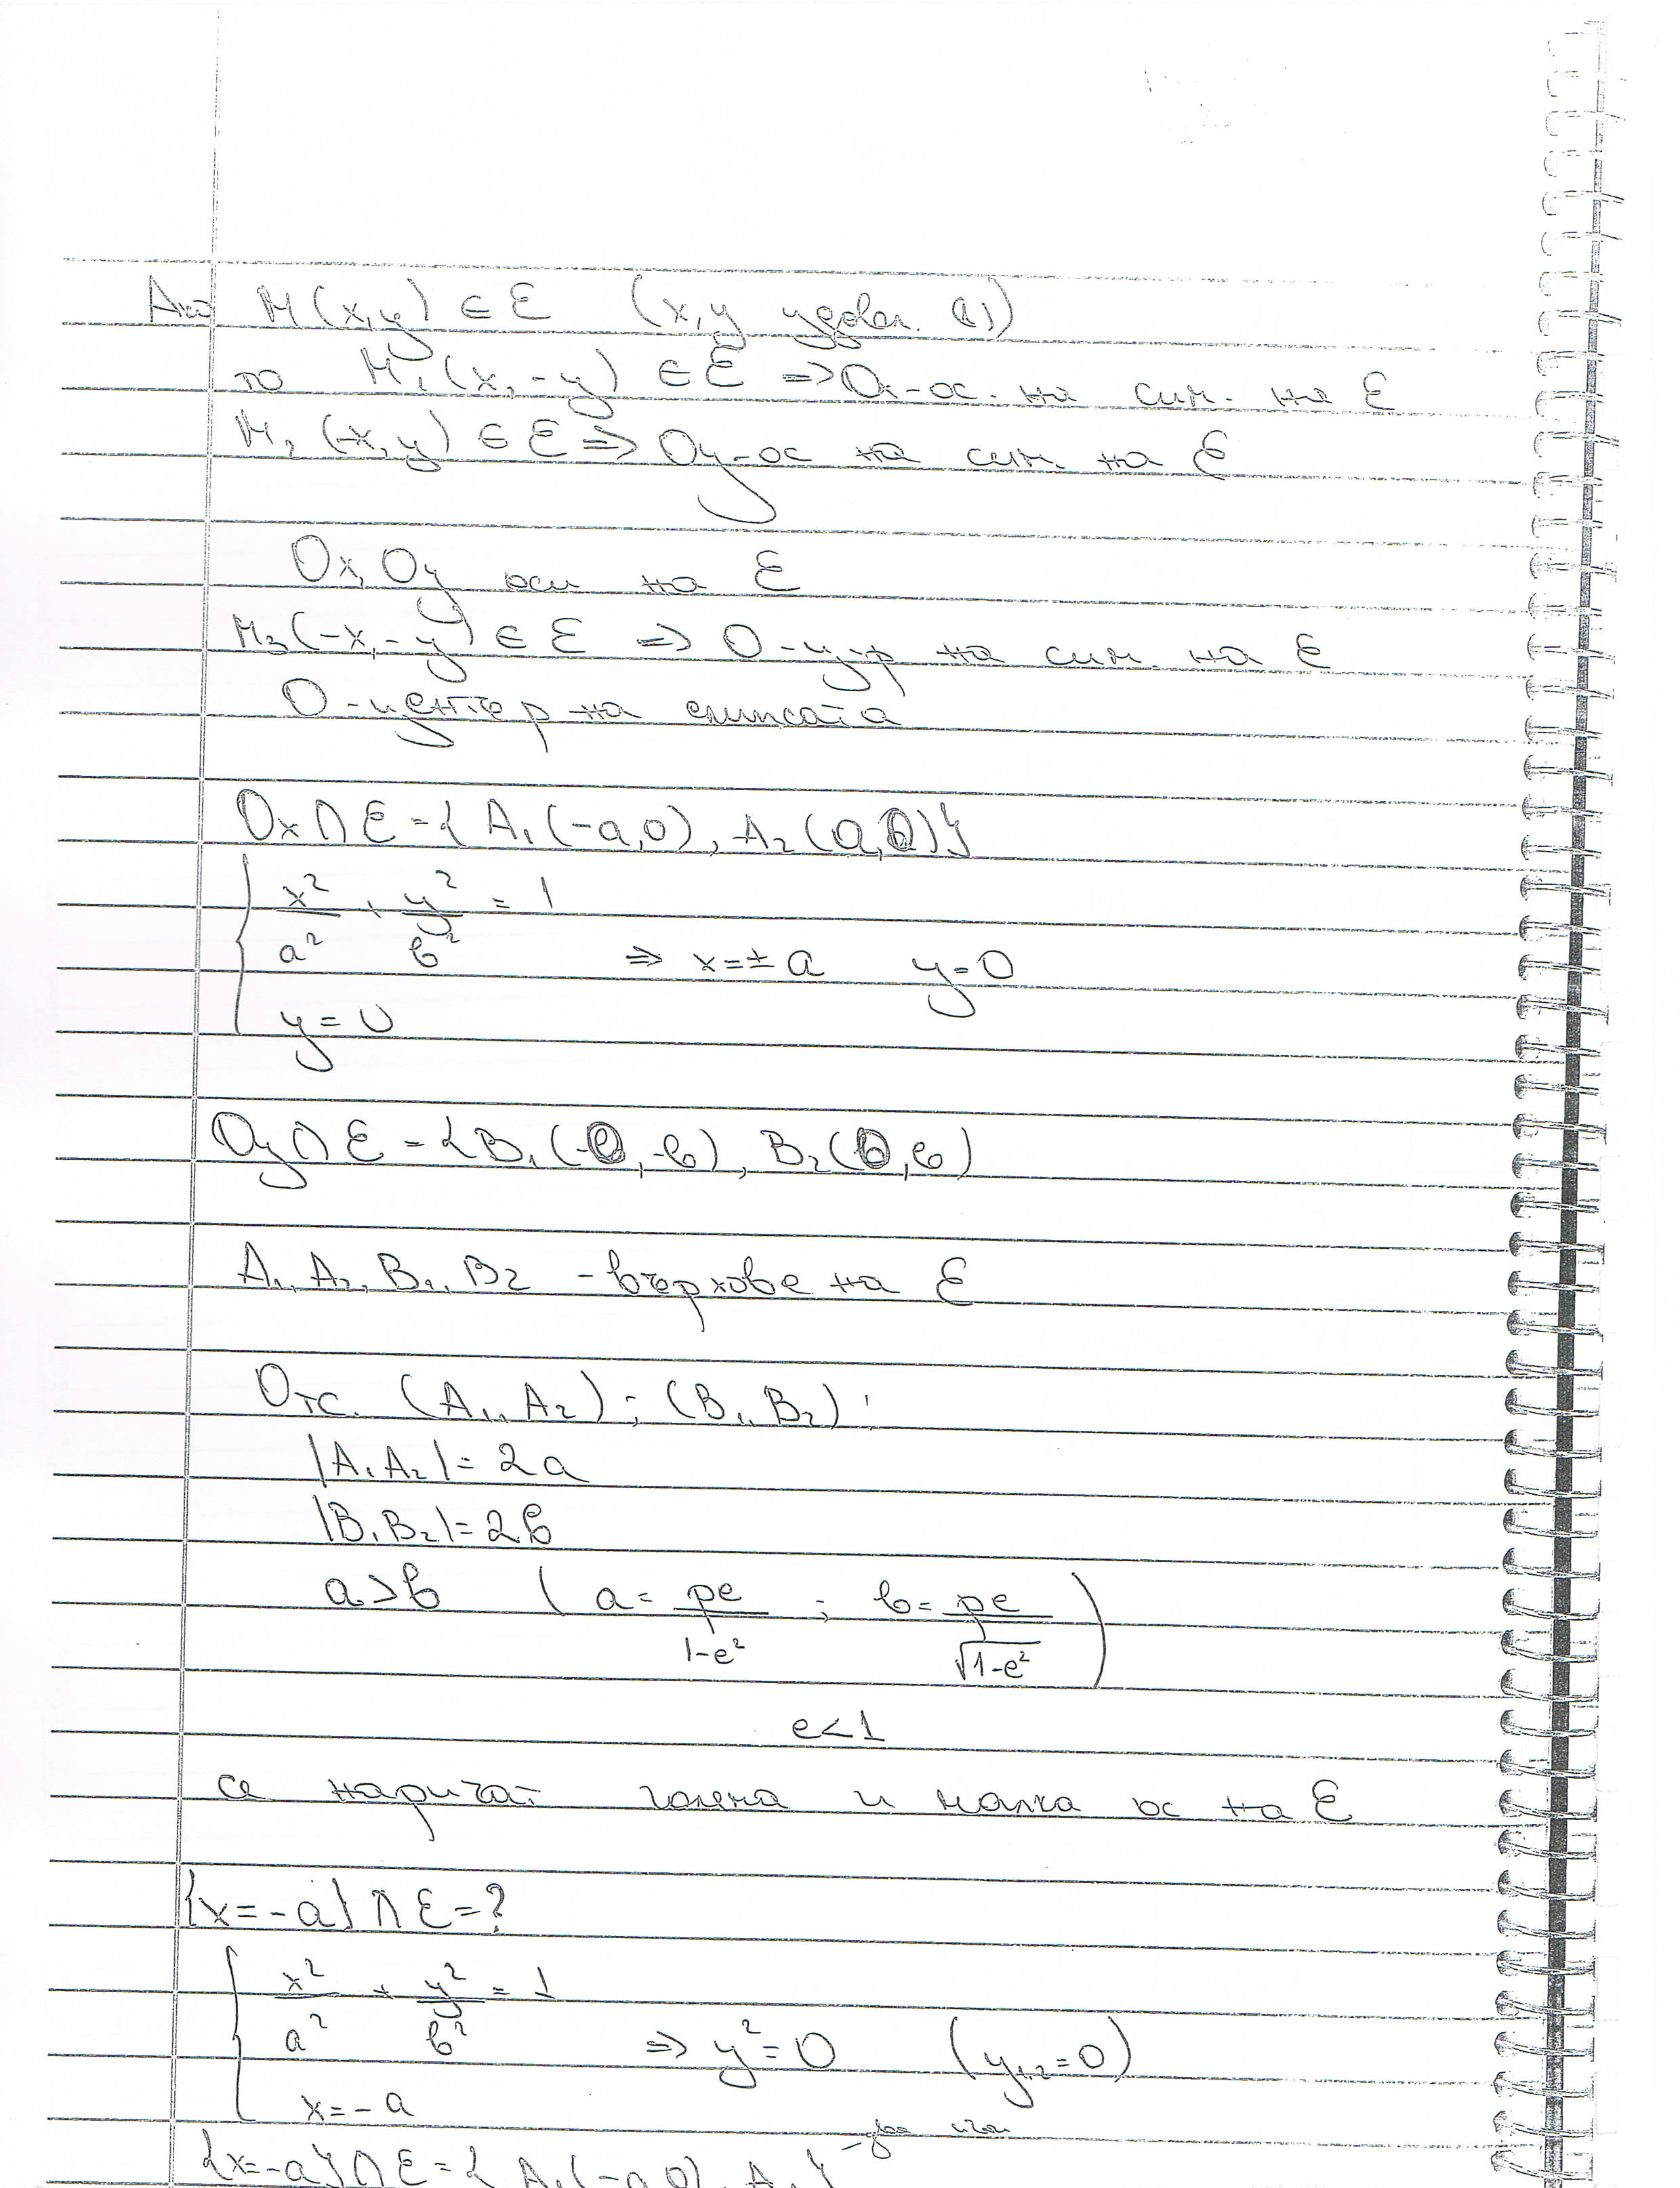 Ако M(x,y) ∈ Ɛ (x,y удовл. (1))
то M₁(x,-y) ∈ Ɛ ⇒ Ox-ос. на сим. на Ɛ
M₂(-x,y) ∈ Ɛ ⇒ Oy-ос на сим. на Ɛ
Ox, Oy оси на Ɛ
M₃(-x,-y) ∈ Ɛ ⇒ O-ц-р на сим. на Ɛ
O-център на елипсата
Ox ∩ Ɛ = { A₁(-a,0), A₂(a,0)}
x²/a² + y²/b² = 1
⇒ x=±a y=0
y=0
Oy ∩ Ɛ = { B₁(-0,-b), B₂(0,b)
A₁, A₂, B₁, B₂ - върхове на Ɛ
Отс. (A₁, A₂); (B₁, B₂);
|A₁A₂|=2a
|B₁B₂|=2b
a>b ( a= pe/1-e² ; b= pe/√1-e² )
e<1
се наричат голяма и малка ос на Ɛ
{x=-a} ∩ Ɛ=?
x²/a² + y²/b² = 1
⇒ y²=0 (y₁,₂=0)
x=-a
{x=-a} ∩ Ɛ = { A₁(-a,0), A₁}